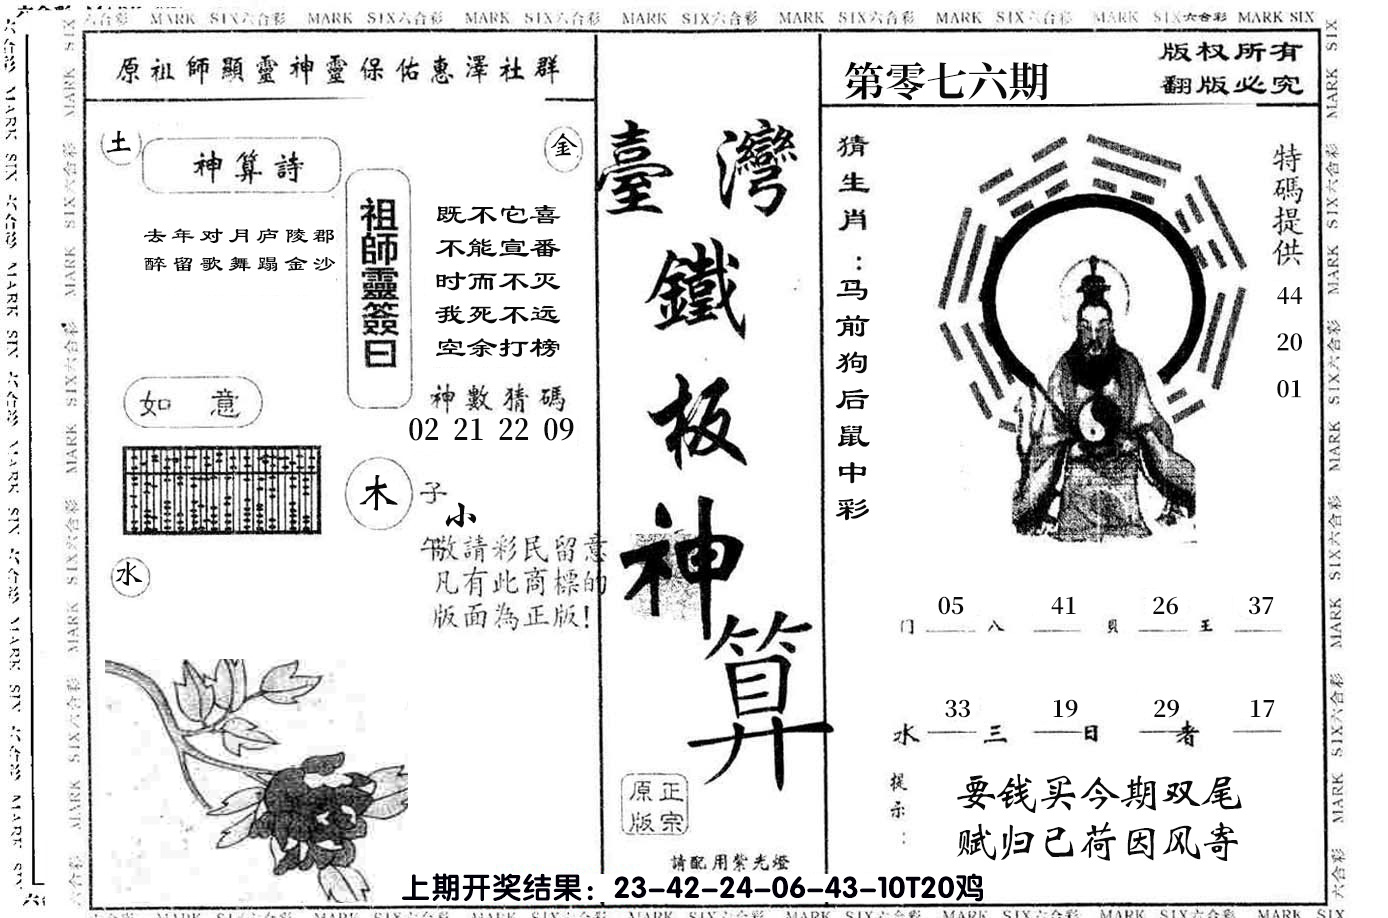 六合彩 MARK SIX六合彩 MARK SIX六合彩 MARK SIX六合彩 MARK SIX六合彩 MARK SIX六合彩 MARK SIX六合彩 MARK SIX六合彩 MARK SIX
原祖師顯靈神靈保佑惠澤社群
土
神算詩
金
去年对月庐陵郡
醉留歌舞蹋金沙
祖師靈簽曰
既不它喜
不能宣番
时而不灭
我死不远
空余打榜
神數猜碼
02 21 22 09
如 意
木
子
小
午
敬請彩民留意
凡有此商標的
版面為正版!
水
臺灣
鐵
板
神
算
正宗
原版
請配用紫光燈
第零七六期
版权所有
翻版必究
猜生肖:马前狗后鼠中彩
特碼提供
44
20
01
05 41 26 37
门 八 貝 王
33 19 29 17
水 三 日 者
提示:
要钱买今期双尾
赋归已荷因风寄
上期开奖结果：23-42-24-06-43-10T20鸡